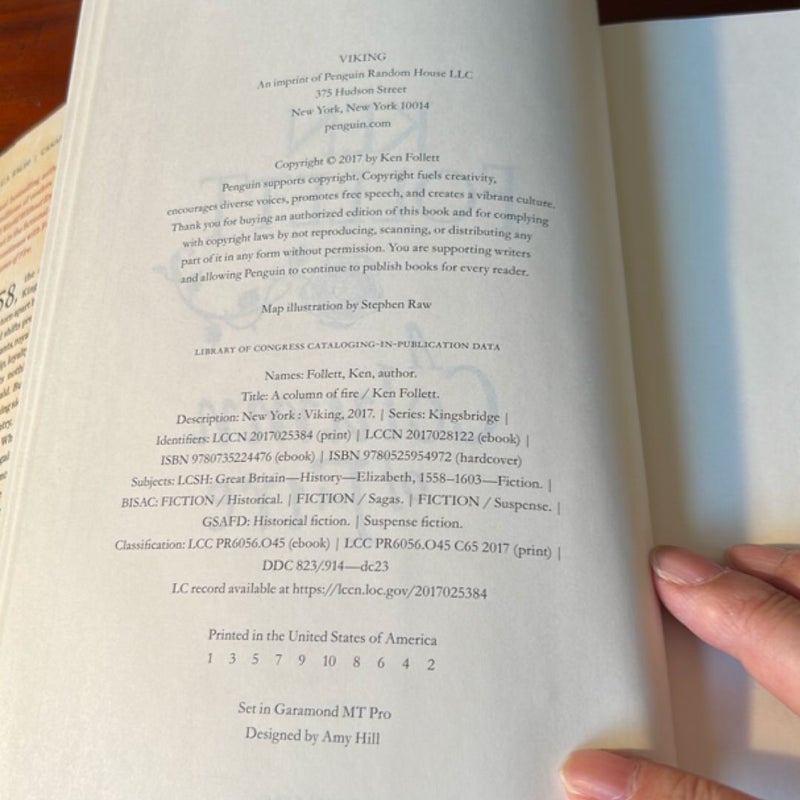 VIKING
An imprint of Penguin Random House LLC
375 Hudson Street
New York, New York 10014
penguin.com
Copyright © 2017 by Ken Follett
Penguin supports copyright. Copyright fuels creativity,
encourages diverse voices, promotes free speech, and creates a vibrant culture.
Thank you for buying an authorized edition of this book and for complying
with copyright laws by not reproducing, scanning, or distributing any
part of it in any form without permission. You are supporting writers
and allowing Penguin to continue to publish books for every reader.
Map illustration by Stephen Raw
LIBRARY OF CONGRESS CATALOGING-IN-PUBLICATION DATA
Names: Follett, Ken, author.
Title: A column of fire / Ken Follett.
Description: New York : Viking, 2017. | Series: Kingsbridge |
Identifiers: LCCN 2017025384 (print) | LCCN 2017028122 (ebook) |
ISBN 9780735224476 (ebook) | ISBN 9780525954972 (hardcover)
Subjects: LCSH: Great Britain—History—Elizabeth, 1558–1603—Fiction. |
BISAC: FICTION / Historical. | FICTION / Sagas. | FICTION / Suspense. |
GSAFD: Historical fiction. | Suspense fiction.
Classification: LCC PR6056.O45 (ebook) | LCC PR6056.O45 C65 2017 (print) |
DDC 823/.914—dc23
LC record available at https://lccn.loc.gov/2017025384
Printed in the United States of America
1 3 5 7 9 10 8 6 4 2
Set in Garamond MT Pro
Designed by Amy Hill